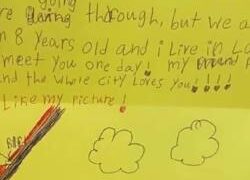 going
re through, but we a
m 8 years old and i Live in Lo
meet you one day! my
nd the whole city Loves you!!!!
Like my picture!